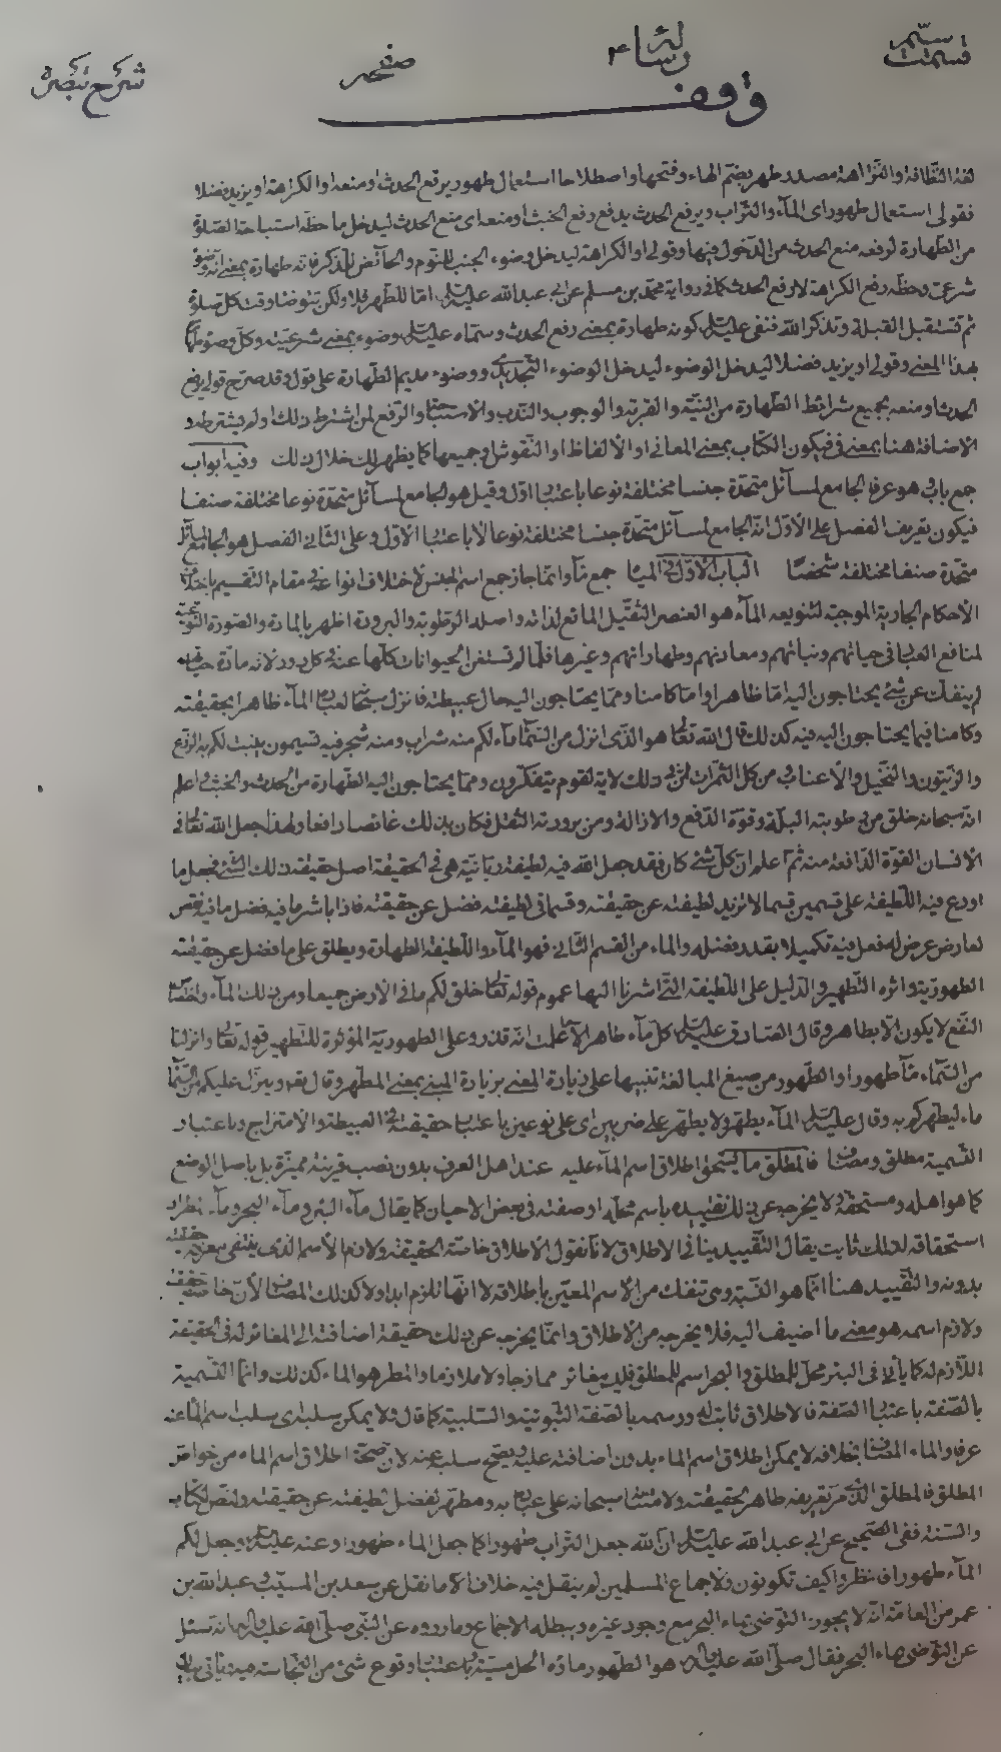 قسمت سیّم
رسالهٔ ۴
صفحه
شرح تبصرة
وقف
لغة النّظافة والنّزاهة مصدر طهر بضمّ الهاء وفتحها واصطلاحا استعمال طهور يرفع الحدث او منعه او الكراهة او يزيد فضلا
فقولى استعمال طهور اى المآء والتّراب ويرفع الحدث يدفع رفع الخبث او منعه اى منع الحدث ليدخل ما حظّه استباحة الصّلوة
من الطّهارة لرفعه منع الحدث من الدّخول فيها وقولى او الكراهة ليدخل وضوء الجنب للنّوم والحآئض للذكر فانّه طهارة بمعنى انّه وضوء
شرعىّ وحظّه رفع الكراهة لا رفع الحدث كما فى رواية محمّد بن مسلم عن ابى عبدالله عليه السّلم امّا للطّهر فلا ولكن تتوضّا وقت كلّ صلوة
ثم تستقبل القبلة وتذكر الله فنفى عليه السّلم كونه طهارة بمعنى رفع الحدث وسمّاه عليه السّلم وضوء بمعنى شرعيّته وكلّ وضوء
بهذا المعنى وقولى او يزيد فضلا ليدخل الوضوء التّجديدى ووضوء مديم الطّهارة على قول وقد صرّح قولى يرفع
الحدث او منعه بجميع شرائط الطّهارة من النيّة والقربة والوجوب والنّدب والاستباحة والرّفع لمن اشترط ذلك او لم يشترطه و
الاضافة هنا بمعنى فى فيكون الكتاب بمعنى المعانى او الالفاظ او النّقوش او جميعها كما يظهر لك خلال ذلك وفيه ابواب
جمع باب وهو عرفا الجامع لمسآئل متّحدة جنسا مختلفة نوعا باعتبار الاوّل وقيل هو الجامع لمسآئل متّحدة نوعا مختلفة صنفا
فيكون تعريف الفصل على الاوّل انّه الجامع لمسآئل متّحدة جنسا مختلفة نوعا لا باعتبار الاوّل وعلى الثّانى الفصل هو الجامع لمسآئل
متّحدة صنفا مختلفة شخصا الباب الاوّل فى المياه جمع مآء وانّما جاز جمع اسم الجنس لاختلاف انواعه فى مقام التّقسيم باختلاف
الاحكام الجارية الموجبة لتنويعه المآء هو العنصر الثّقيل المائع لذاته واصله الرّطوبة والبرودة اظهر بالمادة والصّورة النّوعيّة
لمنافع العباد فى حياتهم ونباتهم ومعادنهم وطهاراتهم وغيرها فلمّا لم تستغن الحيوانات كلّها عنه فى كلّ دور لانه مادّة حياتها
لم ينفك عن شئ يحتاجون اليه امّا ظاهرا وامّا كامنا وممّا يحتاجون اليه حال عبيطة فانزل سبحانه لعباده المآء ظاهرا بحقيقته
وكامنا فيما يحتاجون اليه فيه كذلك قال الله تعالى هو الّذى انزل من السّمآء مآء لكم منه شراب ومنه شجر فيه تسيمون ينبت لكم به الزّرع
والزّيتون والنّخيل والاعناب ومن كلّ الثّمرات انّ فى ذلك لاية لقوم يتفكّرون وممّا يحتاجون اليه الطّهارة من الحدث والخبث واعلم
انّه سبحانه خلق من رطوبته البلّة وقوّة الدّفع والازالة ومن برودته الثّقل فكان بذلك غائصا رافعا ولهذا جعل الله تعالى فى
الانسان القوّة الدّافعة منه ثمّ اعلم انّ كلّ شئ كان فقد جعل الله فيه لطيفة ربّانيّة هى فى الحقيقة اصل حقيقة ذلك الشّئ فجعل ما
اودع فيه اللّطيفة على قسمين قسما لا تزيد لطيفته عن حقيقته وقسما فى لطيفته فضل عن حقيقته فاذا باشر ما فيه فضل ما فيه نقص
لعارض عرض له فعل فيه تكميلا بقدر فضله والماء من القسم الثّانى فهو المآء واللّطيفة الطّهارة ويطلق على ما فضل عن حقيقته
الطهوريّة واثره التّطهير والدّليل على اللّطيفة الّتى اشرنا اليها عموم قوله تعالى خلق لكم ما فى الارض جميعا ومن ذلك المآء
النّفع لا يكون الّا بطاهر وقال الصّادق عليه السّلم كلّ مآء طاهر الّا ما علمت انّه قذر وعلى الطهوريّة المؤثرة للتّطهير قوله تعالى وانزلنا
من السّمآء مآء طهورا والطّهور من صيغ المبالغة تنبيها على زيادة المعنى بزيادة المبنى بمعنى المطهر وقال تعه وينزّل عليكم من السّمآء
ماء ليطهركم به وقال عليه السّلم المآء يطهّر ولا يطهّر على ضربين اى على نوعين باعتبار حقيقته العبيطة والامتزاج وباعتبار
التّسمية مطلق ومضاف فالمطلق ما يستحقّ اطلاق اسم المآء عليه عند اهل العرف بدون نصب قرينة مميّزة بل باصل الوضع
كما هو اهله ومستحقّه ولا يخرجه عن ذلك تقييده باسم محلّه او صفته فى بعض الاحيان كما يقال مآء البئر ومآء البحر ومآء
استحقاقه لذلك ثابت يقال التّقييد ينافى الاطلاق لانّا نقول الاطلاق خاصّة الحقيقة ولازم الاسم الّذى
بدونه والتّقييد هنا انّما هو النّسبة وهى تنفك من الاسم المعيّن باطلاقه لا انّها تلزم ابدا ولا كذلك المضاف لانّ
ولازم اسمه هو معنى ما اضيف اليه فلا يخرجه من الاطلاق وانّما يخرجه عن ذلك حقيقة اضافته الى المغائر له فى الحقيقة
اللّازم له كما يأتى فى البئر محلّ للمطلق والبحر اسم للمطلق فليس مغائر ممازجا ولا ملازما والمطر هو الماء كذلك وانّما التّسمية
بالصّفة باعتبار الصّفة فالاطلاق ثابت له ورسمه بالصّفة الثّبوتية والسّلبية كما قال ولا يمكن سلبه اى سلب اسم المآء عنه
عرفا والماء المضاف بخلافه لا يمكن اطلاق اسم الماء بدون اضافته عليه ويصح سلبه عنه لانّ صحّة اطلاق اسم الماء من خواصّ
المطلق فالمطلق الّذى مرّ تعريفه طاهر لحقيقته ولامتنانه سبحانه على عباده به ومطهّر لفضل لطيفته عن حقيقته ولنصّ الكتاب
والسّنّة ففى الصّحيح عن ابى عبد الله عليه السّلم انّ الله جعل التّراب طهورا كما جعل الماء طهورا وعنه عليه السّلم وجعل لكم
المآء طهورا فانظروا كيف تكونون ولاجماع المسلمين لم ينقل فيه خلاف الّا ما نقل عن سعد بن المسيّب وعبد الله بن
عمر من العامّة انّه لا يجوز التوضّى بمآء البحر مع وجود غيره ويبطله الاجماع وما رووه عن النّبى صلّى الله عليه وآله انّه سئل
عن التوضّى بماء البحر فقال صلّى الله عليه وآله هو الطّهور ماؤه الحل ميتته وباعتبار وقوع شئ من النّجاسة فيه يأتى